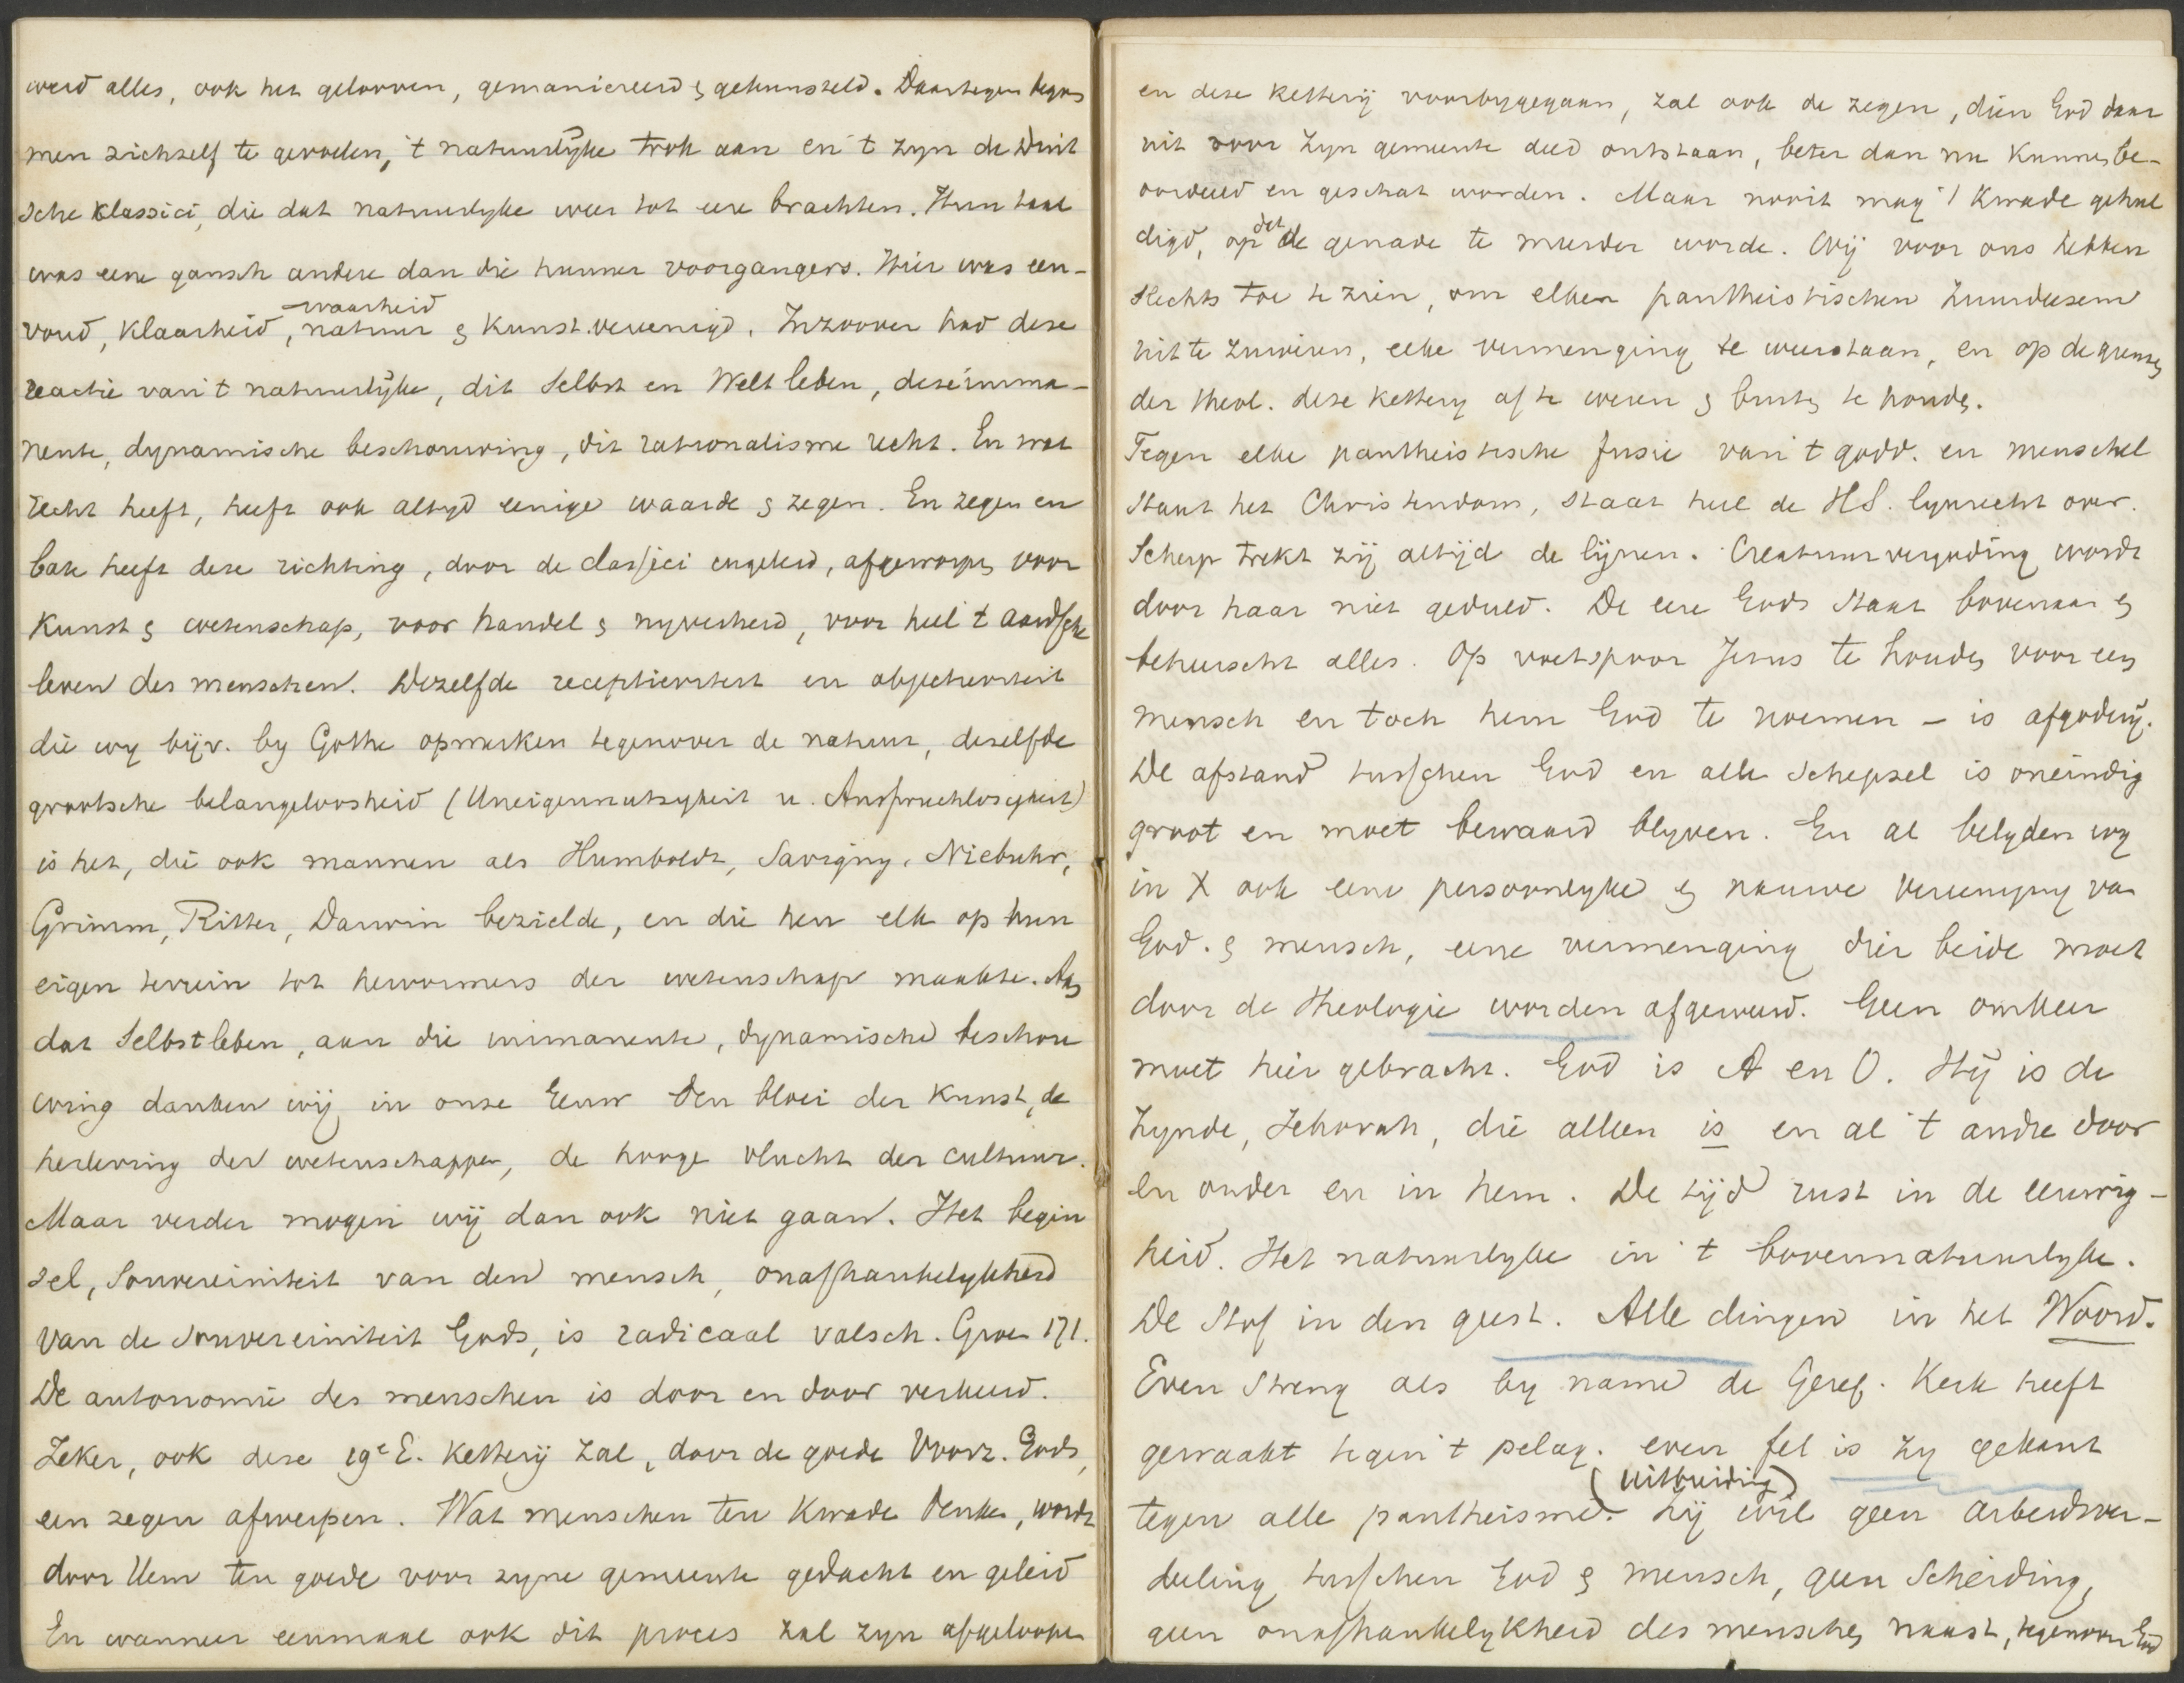 werd alles, ook het gelooven, gemaniereerd & gekunsteld. Daartegen begon
men zichzelf te gevoelen, 't natuurlijke trok aan en 't zyn de Duit
sche klassici, die dat natuurlyke weer tot eere brachten. Hun taal
was eene gansch andere dan die hunner voorgangers. Hier was een-
voud, klaarheid, waarheid natuur & kunst vereenigd. Inzoover had deze
reactie van 't natuurlijke, dit Selbst en Welt leben, deze imma-
nente, dynamische beschouwing, dit rationalisme recht. En wat
recht heeft, heeft ook altyd eenige waarde & zegen. En zegen en
baat heeft deze richting, door de classici ingeleid, afgeworpen voor
Kunst & wetenschap, voor handel & nyverheid, voor heel 't aardsche
leven des menschen. Dezelfde receptiviteit en objectiviteit
die wy bijv. by Göthe opmerken tegenover de natuur, dezelfde
grootsche belangeloosheid (Uneigennutzykeit u. Anspruchlosigkeit)
is het, die ook mannen als Humboldt, Savigny, Niebuhr,
Grimm, Ritter, Darwin bezielde, en die hen elk op hun
eigen terrein tot hervormers der wetenschap maakte. Aan
dat Selbstleben, aan die immanente, dynamische beschou
wing danken wij in onze Eeuw den bloei der Kunst, de
herleving der wetenschappen, de hooge vlucht der cultuur.
Maar verder mogen wij dan ook niet gaan. Het begin
sel, Souvereiniteit van den mensch, onafhankelykheid
van de souvereiniteit Gods, is radicaal valsch. Groen 171.
De autonomie des menschen is door en door verkeerd.
Zeker, ook deze 19e E. Ketterij zal, door de goede Voorz. Gods,
een zegen afwerpen. Wat menschen ten Kwade denken, wordt
door Hem ten goede voor zyne gemeente gedacht en geleid
En wanneer eenmaal ook dit proces zal zyn afgeloopen
en deze Ketterij voorbygegaan, zal ook de zegen, dien God daar
uit voor Zyn gemeente deed ontstaan, beter dan nu kunnen be-
oordeeld en geschat worden. Maar nooit mag 't Kwade gehul
digd, op dat de genade te meerder worde. Wij voor ons hebben
slechts toe te zien, om elken pantheistischen Zuurdeesem
uit te zuiveren, elke vermenging te weerstaan, en op de grenzen
der theol. deze kettery af te weren & buiten te houden.
Tegen elke pantheistische fusie van 't godd. en menschel
staat het Christendom, staat heel de H.S. lynrecht over.
Scherp trekt zij altijd de lijnen. Creatuurvergoding wordt
door haar niet geduld. De eere Gods staat bovenaan &
beheerscht alles. Op voetspoor Jezus te houden voor een
mensch en toch hem God te noemen – is afgodery.
De afstand tusschen God en alle schepsel is oneindig
groot en moet bewaard blyven. En al belyden wy
in X ook eene persoonlyke & nauwe vereeniging van
God & mensch, eene vermenging dier beide moet
door de Theologie worden afgeweerd. Geen omkeer
moet hier gebracht. God is A en O. Hij is de
Zynde, Jehovah, die alleen is en al 't andre door
en onder en in hem. De tijd rust in de eeuwig-
heid. Het natuurlyke in 't bovennatuurlyke.
De Stof in den geest. Alle dingen in het Woord.
Even streng als by name de Geref. Kerk heeft
gewaakt tegen 't pelag. even fel is zy gekant
tegen alle pantheisme. (uitbreiding) Zij wil geen arbeidsver-
deeling tusschen God & mensch, geen Scheiding,
geen onafhankelykheid des menschen naast, tegenover God